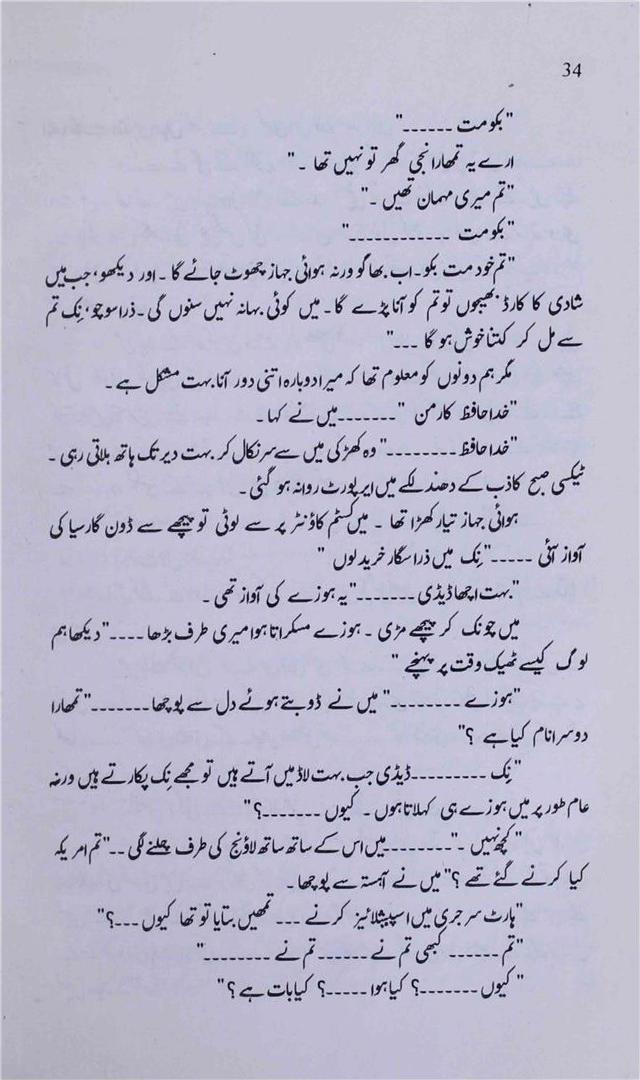 34
"بکومت ------"
ارے یہ تمھارا نجی گھر تو نہیں تھا ۔"
"تم میری مہمان تھیں ۔"
"بکومت ------------"
"تم خود مت بکو۔ اب بھاگو ورنہ ہوائی جہاز چھوٹ جائے گا ۔ اور دیکھو، جب میں
شادی کا کارڈ بھیجوں تو تم کو آنا پڑے گا۔ میں کوئی بہانہ نہیں سنوں گی۔ ذرا سوچو، نِک تم
سے مل کر کتنا خوش ہو گا ---"
مگر ہم دونوں کو معلوم تھا کہ میرا دوبارہ اتنی دور آنا بہت مشکل ہے ۔
"خدا حافظ کارمن "------- میں نے کہا ۔
"خدا حافظ--------" وہ کھڑکی میں سے سر نکال کر بہت دیر تک ہاتھ ہلاتی رہی ۔
ٹیکسی صبح کاذب کے دھندلکے میں ایرپورٹ روانہ ہو گئی ۔
ہوائی جہاز تیار کھڑا تھا ۔ میں کسٹم کاؤنٹر پر سے لوٹی تو پیچھے سے ڈون گارسیا کی
آواز آئی -----"نِک میں ذرا سگار خرید لوں "
"بہت اچھا ڈیڈی ------" یہ ہوزے کی آواز تھی ۔
میں چونک کر پیچھے مڑی ۔ ہوزے مسکراتا ہوا میری طرف بڑھا ----"دیکھا ہم
لوگ کیسے ٹھیک وقت پر پہنچے "
"ہوزے --------" میں نے ڈوبتے ہوئے دل سے پوچھا-------"تمھارا
دوسرا نام کیا ہے ؟"
"نِک --------- ڈیڈی جب بہت لاڈ میں آتے ہیں تو مجھے نِک پکارتے ہیں ورنہ
عام طور پر میں ہوزے ہی کہلاتا ہوں ۔ کیوں -------؟"
"کچھ نہیں ۔"-------- میں اس کے ساتھ ساتھ لاؤنج کی طرف چلنے لگی --"تم امریکہ
کیا کرنے گئے تھے ؟" میں نے آہستہ سے پوچھا۔
"ہارٹ سرجری میں اسپیشلائیز کرنے --- تمھیں بتایا تو تھا کیوں ---؟"
"تم ------ کبھی تم نے ------ تم نے --------"
"کیوں -------؟ کیا ہوا -----؟ کیا بات ہے ؟"